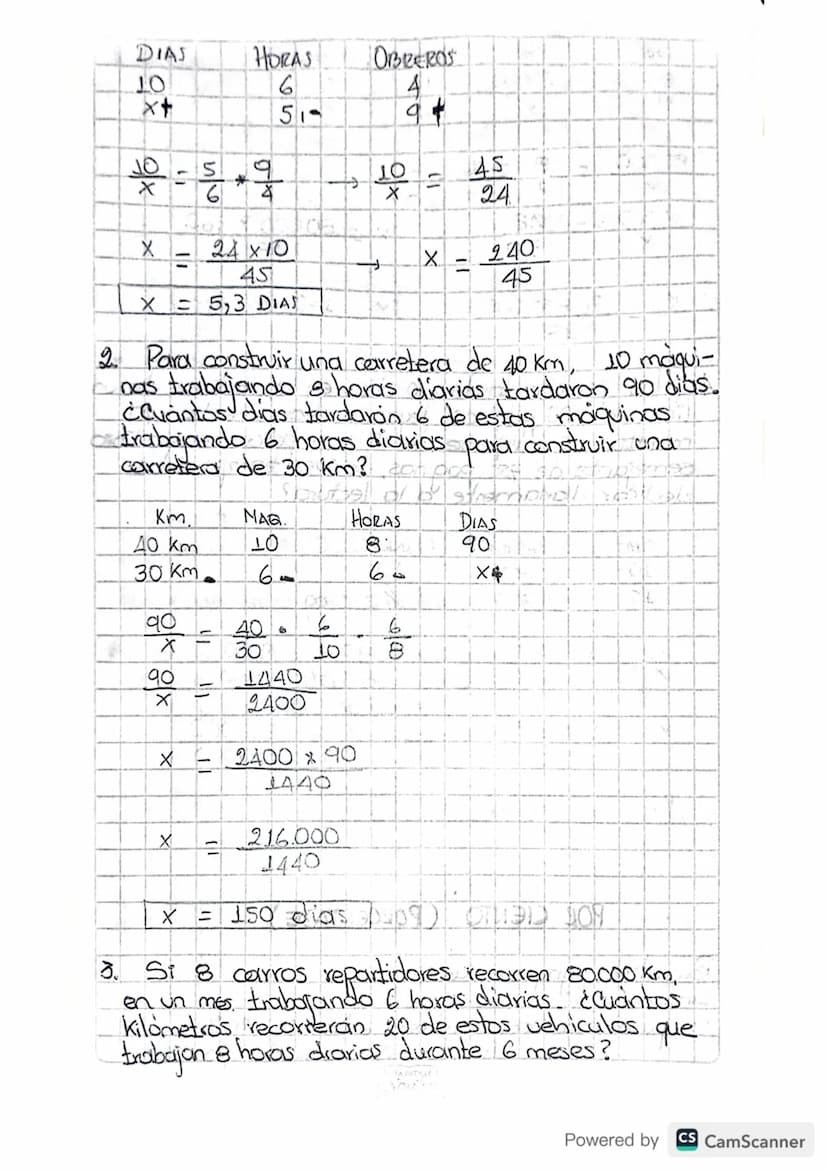 DIAS HORAS OBREROS
10 6 4
x+ 5 - 9 +
10/x = 5/6 * 9/4 → 10/x = 45/24
x = 24 x 10/45 → x = 240/45
x = 5,3 DIAS
2. Para construir una carretera de 40 Km, 10 máqui-
nas trabajando 8 horas diarias tardaron 90 dias.
¿Cuántos dias tardarón 6 de estas máquinas
trabajando 6 horas diarias para construir una
carretera de 30 Km?
Km. MAQ. HORAS DIAS
40 Km 10 8 90
30 Km. 6 - 6 - x+
90/x = 40/30 . 6/10 . 6/8
90/x = 1440/2400
x = 2400 x 90/1440
x = 216.000/1440
x = 150 dias
3. Si 8 carros repartidores recorren 80.000 Km.
en un mes trabajando 6 horas diarias. ¿Cuántos
kilómetros recorrerán 20 de estos vehiculos que
trabajan 8 horas diarias durante 6 meses?
Powered by CS CamScanner